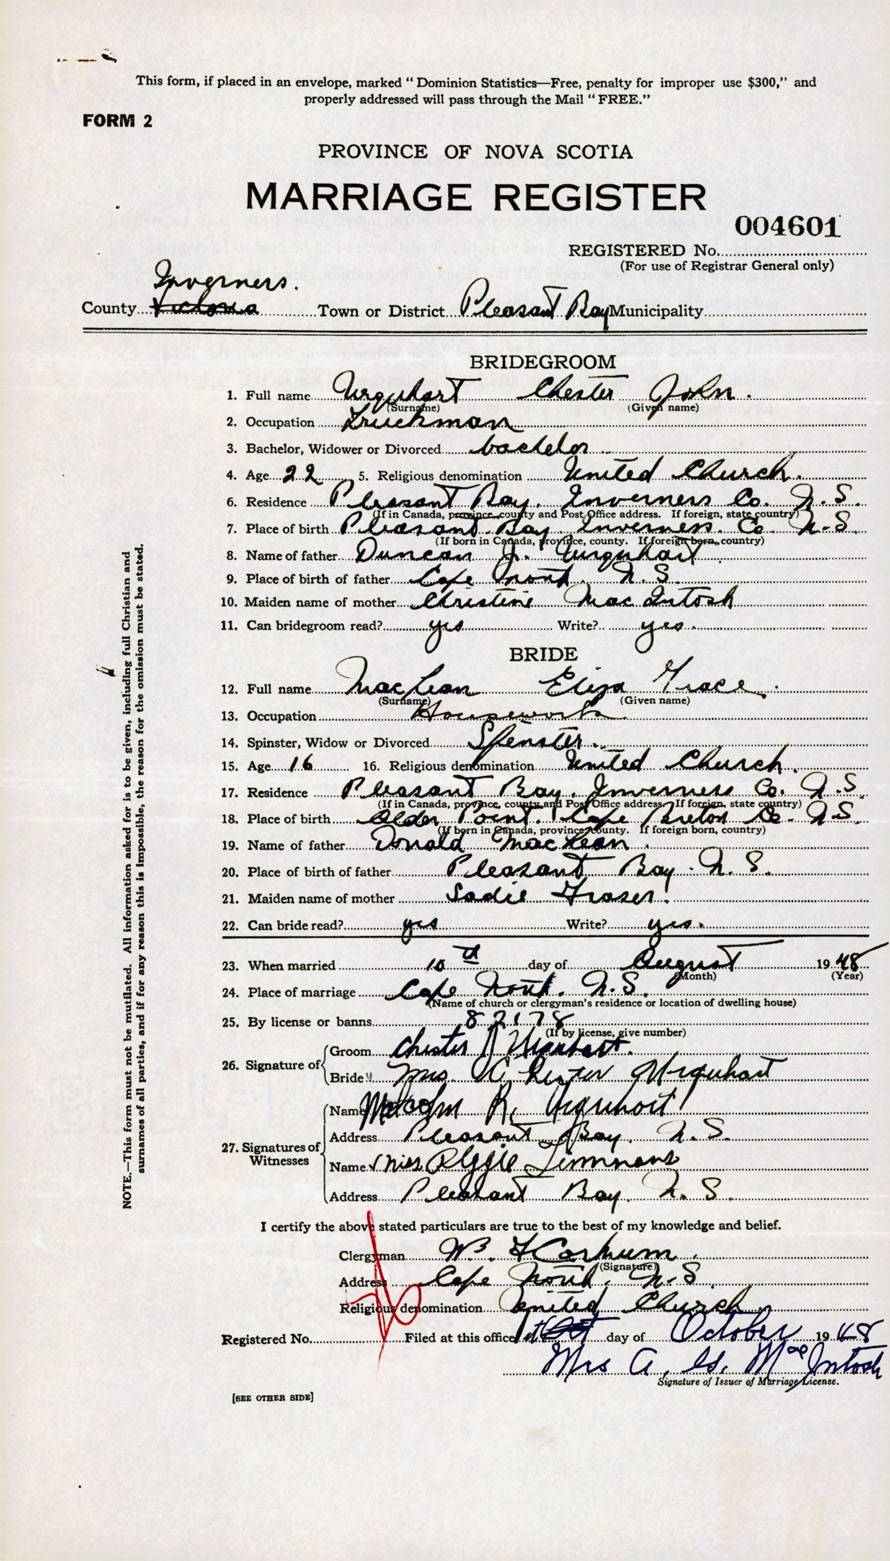 This form, if placed in an envelope, marked "Dominion Statistics—Free, penalty for improper use $300," and
properly addressed will pass through the Mail "FREE."
FORM 2
PROVINCE OF NOVA SCOTIA
MARRIAGE REGISTER
004601
REGISTERED No.
(For use of Registrar General only)
Inverness.
County Victoria Town or District Pleasant Bay Municipality
BRIDEGROOM
1. Full name Urquhart Chester John.
(Surname) (Given name)
2. Occupation Truckman
3. Bachelor, Widower or Divorced bachelor
4. Age 22 5. Religious denomination United Church.
6. Residence Pleasant Bay, Inverness Co. N.S.
(If in Canada, province, county and Post Office address. If foreign, state country)
7. Place of birth Pleasant Bay Inverness Co N-S
(If born in Canada, province, county. If foreign born, country)
8. Name of father Duncan J. Urquhart
9. Place of birth of father Cape North. N.S.
10. Maiden name of mother Christine MacIntosh
11. Can bridegroom read? yes Write? yes.
BRIDE
12. Full name MacLean Eliza Grace.
(Surname) (Given name)
13. Occupation Housework
14. Spinster, Widow or Divorced Spenster.
15. Age 16 16. Religious denomination United Church.
17. Residence Pleasant Bay, Inverness Co. N.S.
(If in Canada, province, county and Post Office address. If foreign, state country)
18. Place of birth Alder Point. Cape Breton Co. N.S.
(If born in Canada, province, county. If foreign born, country)
19. Name of father Donald MacLean.
20. Place of birth of father Pleasant Bay. N.S.
21. Maiden name of mother Sadie Fraser.
22. Can bride read? yes Write? yes.
23. When married 10th day of August 1948
(Month) (Year)
24. Place of marriage Cape North. N.S.
(Name of church or clergyman's residence or location of dwelling house)
25. By license or banns 82178
(If by license, give number)
26. Signature of
Groom Chester J Urquhart.
Bride Mrs. Chester Urquhart
27. Signatures of Witnesses
Name Malcolm R. Urquhart
Address Pleasant Bay. N.S.
Name Miss Timmons
Address Pleasant Bay. N.S.
I certify the above stated particulars are true to the best of my knowledge and belief.
Clergyman W.
(Signature)
Address Cape North. N.S.
Religious denomination United Church
Registered No. Filed at this office day of October 1948
Mrs A. MacIntosh
Signature of Issuer of Marriage License.
[SEE OTHER SIDE]
NOTE.—This form must not be mutilated. All information asked for is to be given, including full Christian and
surnames of all parties, and if for any reason this is impossible, the reason for the omission must be stated.